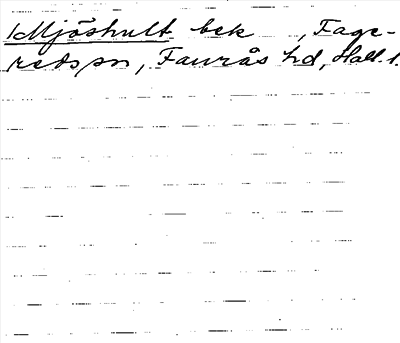 Mjöshult bek , Fage-
redspsn, Faurås hd, Hall. l.